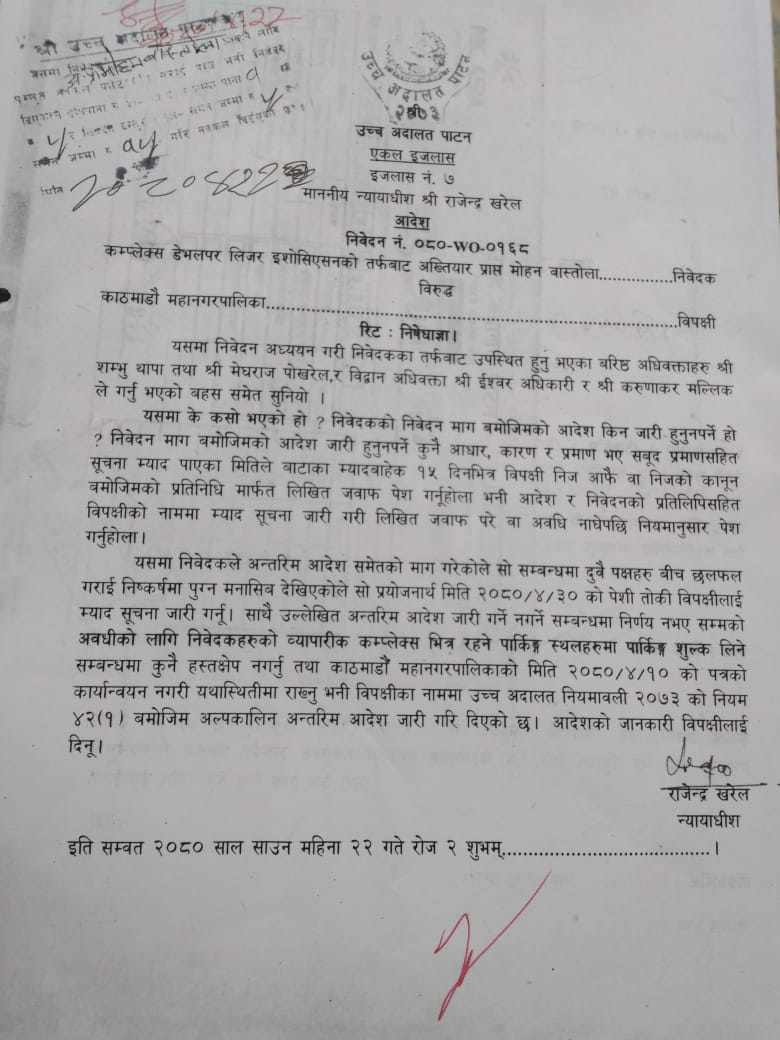 श्री उच्च अदालत पाटन
उच्च अदालत पाटन
२०७३
श्री
उच्च अदालत पाटन
एकल इजलास
इजलास नं. ७
माननीय न्यायाधीश श्री राजेन्द्र खरेल
आदेश
निवेदन नं. ०८०-WO-०१६८
कम्प्लेक्स डेभलपर लिजर इशोसिएसनको तर्फबाट अख्तियार प्राप्त मोहन वास्तोला...............निवेदक
विरुद्ध
काठमाडौं महानगरपालिका...............................................................................विपक्षी
रिट : निषेधाज्ञा।
यसमा निवेदन अध्ययन गरी निवेदकका तर्फबाट उपस्थित हुनु भएका बरिष्ठ अधिवक्ताहरु श्री
शम्भु थापा तथा श्री मेघराज पोखरेल,र विद्वान अधिवक्ता श्री ईश्वर अधिकारी र श्री करुणाकर मल्लिक
ले गर्नु भएको बहस समेत सुनियो ।
यसमा के कसो भएको हो ? निवेदकको निवेदन माग बमोजिमको आदेश किन जारी हुनुनपर्ने हो
? निवेदन माग बमोजिमको आदेश जारी हुनुनपर्ने कुनै आधार, कारण र प्रमाण भए सबूद प्रमाणसहित
सूचना म्याद पाएका मितिले बाटाका म्यादवाहेक १५ दिनभित्र विपक्षी निज आफै वा निजको कानून
बमोजिमको प्रतिनिधि मार्फत लिखित जवाफ पेश गर्नूहोला भनी आदेश र निवेदनको प्रतिलिपिसहित
विपक्षीको नाममा म्याद सूचना जारी गरी लिखित जवाफ परे वा अवधि नाघेपछि नियमानुसार पेश
गर्नुहोला।
यसमा निवेदकले अन्तरिम आदेश समेतको माग गरेकोले सो सम्बन्धमा दुवै पक्षहरु बीच छलफल
गराई निष्कर्षमा पुग्न मनासिव देखिएकोले सो प्रयोजनार्थ मिति २०८०/४/३० को पेशी तोकी विपक्षीलाई
म्याद सूचना जारी गर्नू। साथै उल्लेखित अन्तरिम आदेश जारी गर्ने नगर्ने सम्बन्धमा निर्णय नभए सम्मको
अवधीको लागि निवेदकहरुको व्यापारीक कम्प्लेक्स भित्र रहने पार्किङ्ग स्थलहरुमा पार्किङ्ग शुल्क लिने
सम्बन्धमा कुनै हस्तक्षेप नगर्नु तथा काठमाडौं महानगरपालिकाको मिति २०८०/४/१० को पत्रको
कार्यान्वयन नगरी यथास्थितीमा राख्नु भनी विपक्षीका नाममा उच्च अदालत नियमावली २०७३ को नियम
४२(१) बमोजिम अल्पकालिन अन्तरिम आदेश जारी गरि दिएको छ। आदेशको जानकारी विपक्षीलाई
दिनू।
राजेन्द्र खरेल
न्यायाधीश
इति सम्वत २०८० साल साउन महिना २२ गते रोज २ शुभम्.......................................।